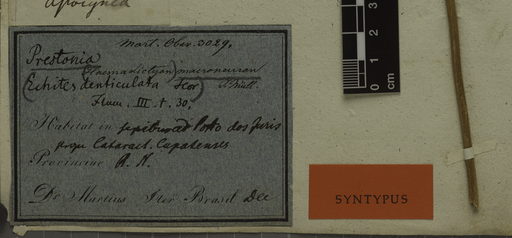 Apocynea
Mart. Obs. 3029.
Prestonia
(Haemadictyon) macroneuron
(Echites denticulata
Flum. III. t. 30.
Habitat in sepibus ad Porto dos
prope Cataract.
Provinciae R. N.
Dr. Martius Iter Brasil Dec
0 1 2 3
cm
SYNTYPUS